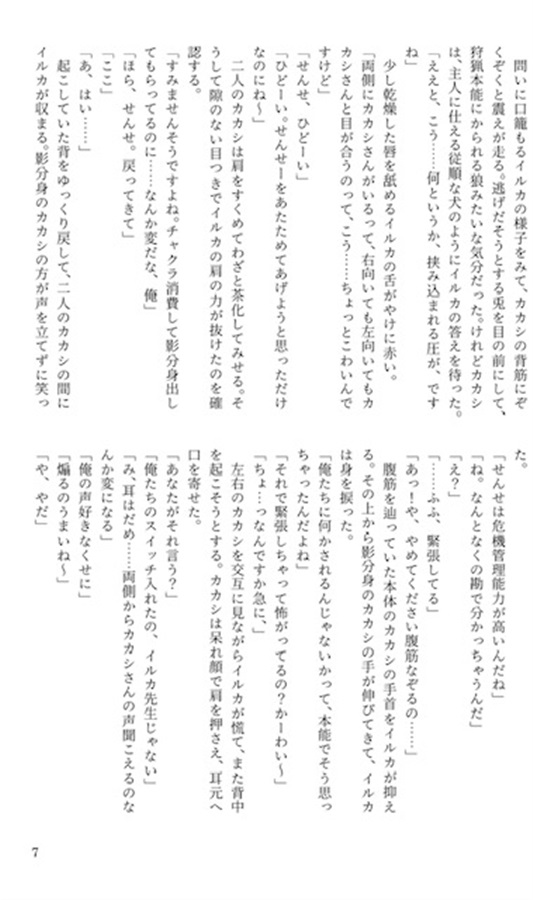 問いに口籠もるイルカの様子をみて、カカシの背筋にぞ
くぞくと震えが走る。逃げだそうとする兎を目の前にして、
狩猟本能にかられる狼みたいな気分だった。けれどカカシ
は、主人に仕える従順な犬のようにイルカの答えを待った。
「ええと、こう……何というか、挟み込まれる圧が、です
ね」
　少し乾燥した唇を舐めるイルカの舌がやけに赤い。
「両側にカカシさんがいるって、右向いても左向いてもカ
カシさんと目が合うのって、こう……ちょっとこわいんで
すけど」
「せんせ、ひどーい」
「ひどーい。せんせーをあたためてあげようと思っただけ
なのにね〜」
　二人のカカシは肩をすくめてわざと茶化してみせる。そ
うして隙のない目つきでイルカの肩の力が抜けたのを確
認する。
「すみませんそうですよね。チャクラ消費して影分身出し
てもらってるのに……なんか変だな、俺」
「ほら、せんせ。戻ってきて」
「ここ」
「あ、はい……」
　起こしていた背をゆっくり戻して、二人のカカシの間に
イルカが収まる。影分身のカカシの方が声を立てずに笑っ
た。
「せんせは危機管理能力が高いんだね」
「ね。なんとなくの勘で分かっちゃうんだ」
「え？」
「……ふふ、緊張してる」
「あっ！や、やめてください腹筋なぞるの……」
　腹筋を辿っていた本体のカカシの手首をイルカが抑え
る。その上から影分身のカカシの手が伸びてきて、イルカ
は身を捩った。
「俺たちに何かされるんじゃないかって、本能でそう思っ
ちゃったんだよね」
「それで緊張しちゃって怖がってるの？かーわい〜」
「ちょ…っなんですか急に、」
　左右のカカシを交互に見ながらイルカが慌て、また背中
を起こそうとする。カカシは呆れ顔で肩を押さえ、耳元へ
口を寄せた。
「あなたがそれ言う？」
「俺たちのスイッチ入れたの、イルカ先生じゃない」
「み、耳はだめ……両側からカカシさんの声聞こえるのな
んか変になる」
「俺の声好きなくせに」
「煽るのうまいね〜」
「や、やだ」
7